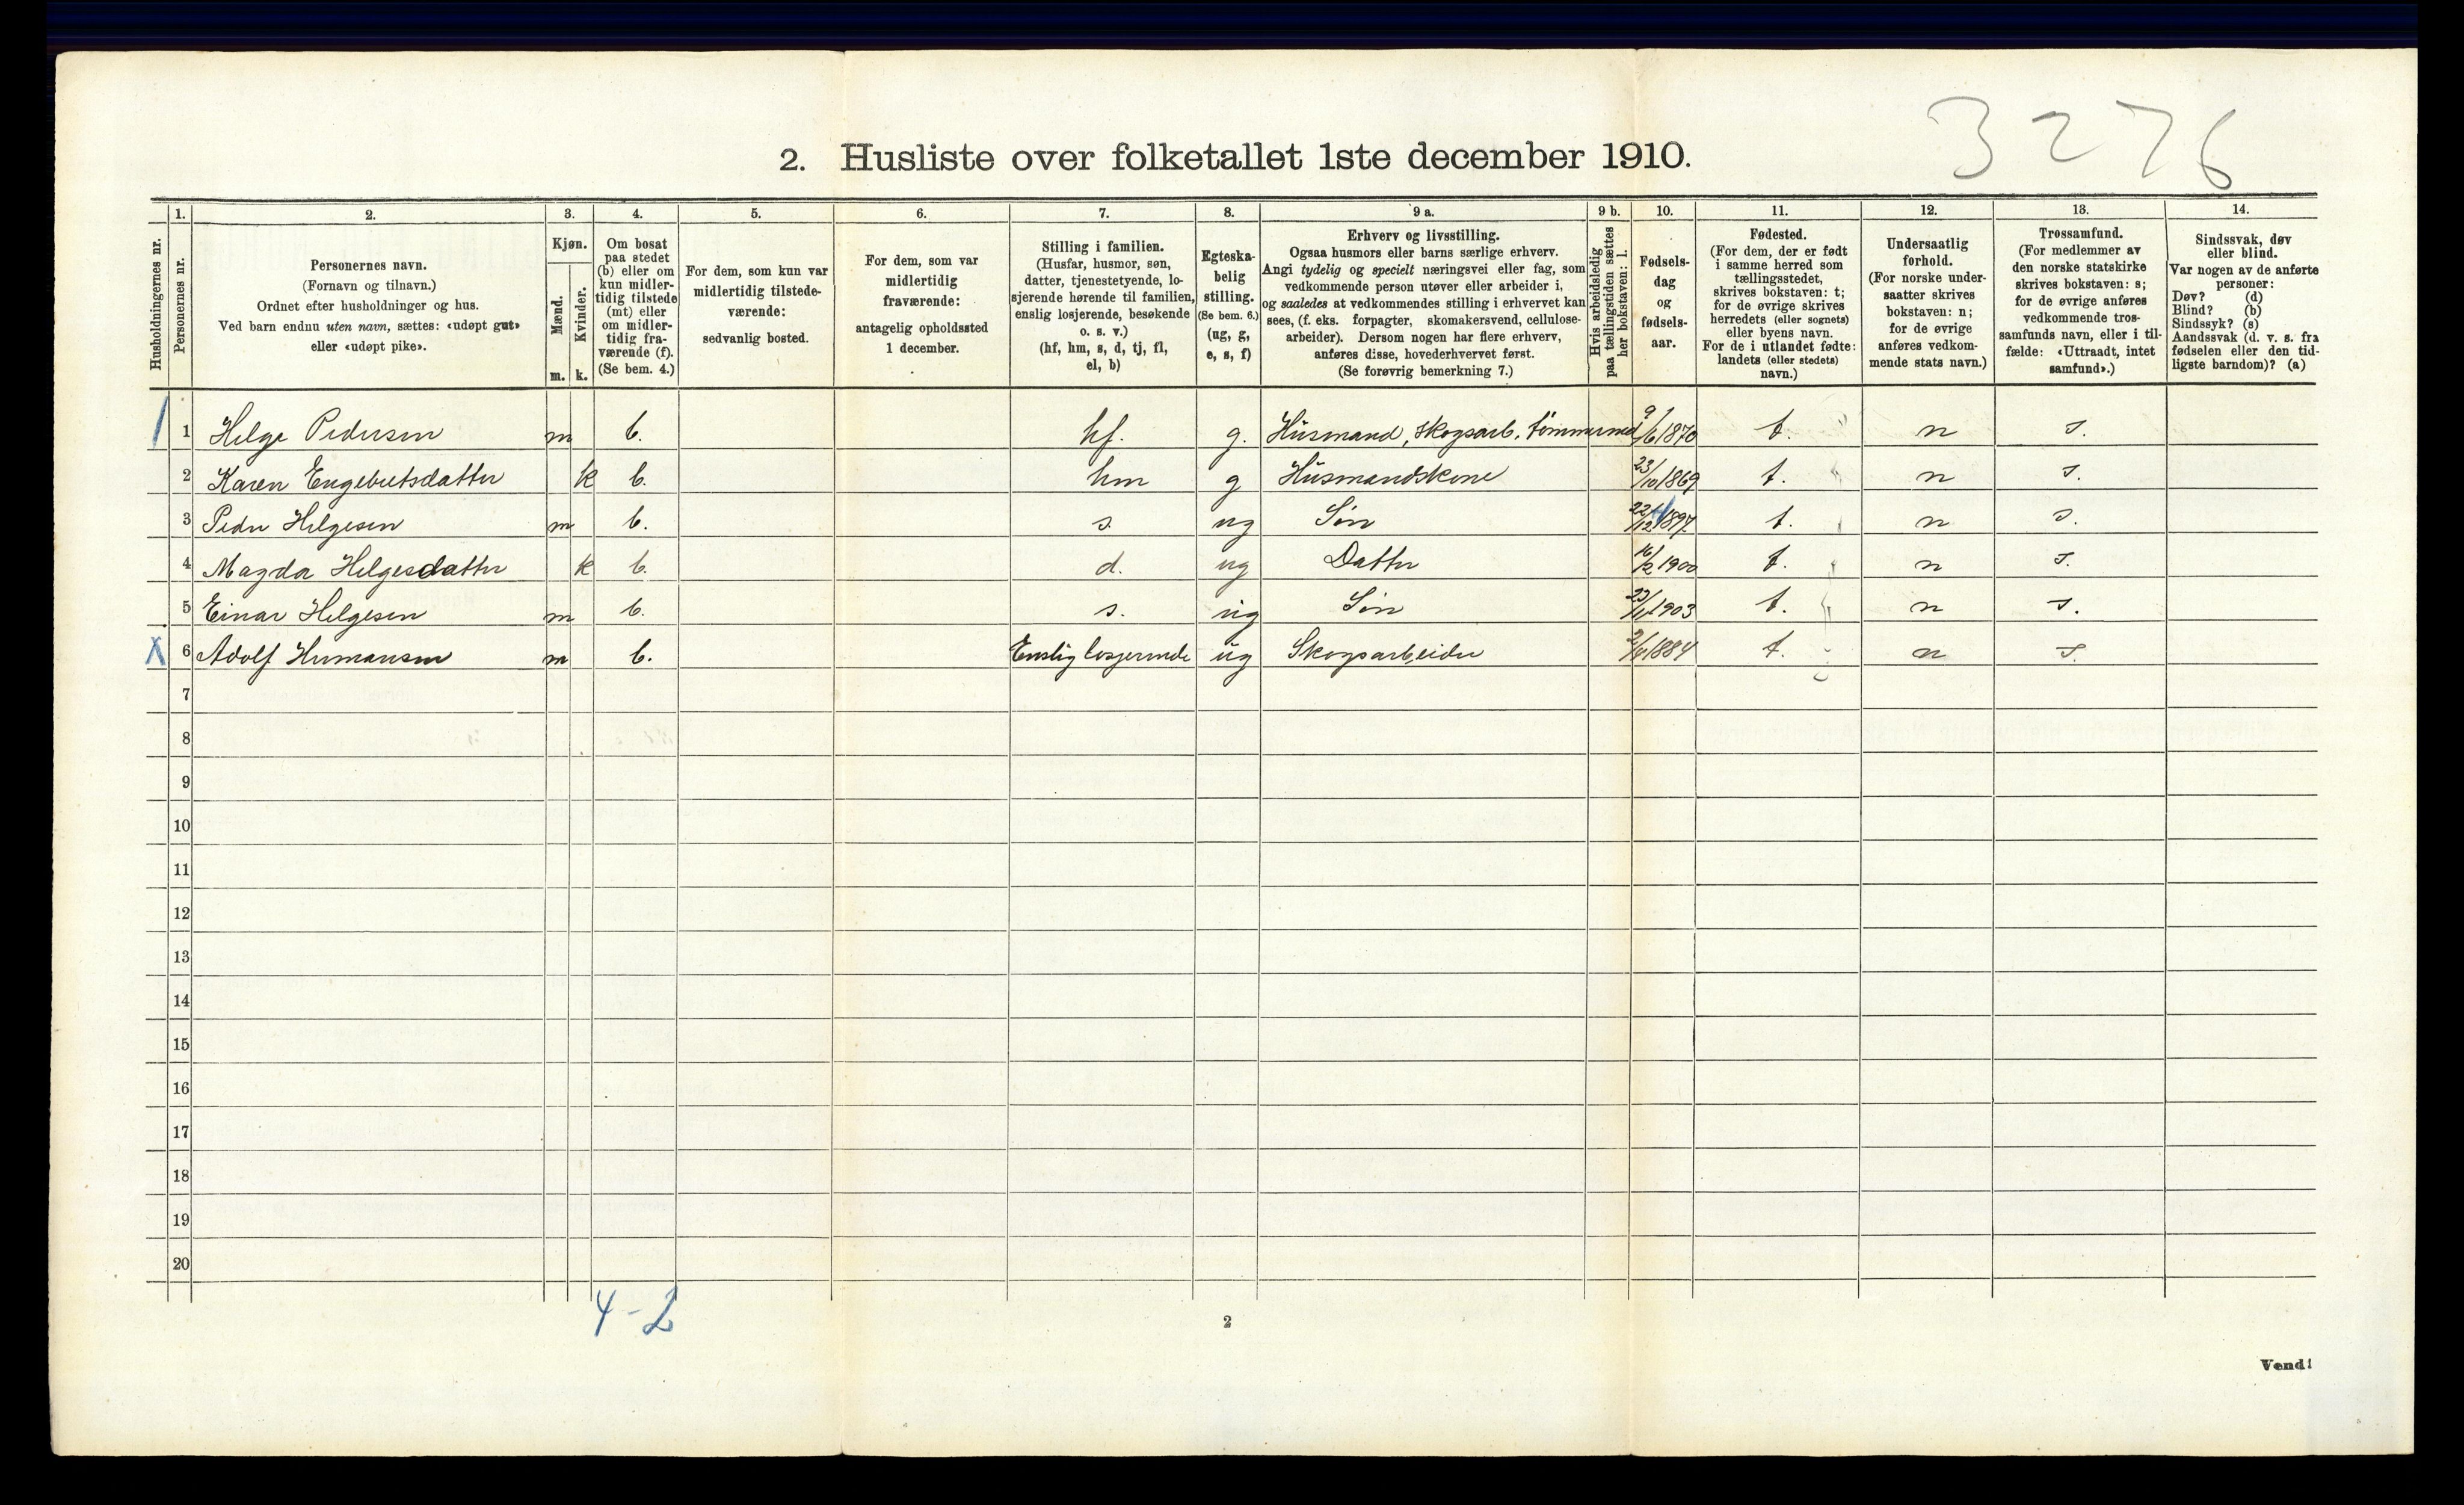 3276
2. Husliste over folketallet 1ste december 1910.
Husholdningernes nr.
1.
Personernes nr.
2.
Personernes navn.
(Fornavn og tilnavn.)
Ordnet efter husholdninger og hus.
Ved barn endnu uten navn, sættes: «udøpt gut»
eller «udøpt pike».
3.
Kjøn.
Mænd.
Kvinder.
m. k.
4.
Om bosat
paa stedet
(b) eller om
kun midler-
tidig tilstede
(mt) eller
om midler-
tidig fra-
værende (f).
(Se bem. 4.)
5.
For dem, som kun var
midlertidig tilstede-
værende:
sedvanlig bosted.
6.
For dem, som var
midlertidig
fraværende:
antagelig opholdssted
1 december.
7.
Stilling i familien.
(Husfar, husmor, søn,
datter, tjenestetyende, lo-
sjerende hørende til familien,
enslig losjerende, besøkende
o. s. v.)
(hf, hm, s, d, tj, fl,
el, b)
8.
Egteska-
belig
stilling.
(Se bem. 6.)
(ug, g,
e, s, f)
9 a.
Erhverv og livsstilling.
Ogsaa husmors eller barns særlige erhverv.
Angi tydelig og specielt næringsvei eller fag, som
vedkommende person utøver eller arbeider i,
og saaledes at vedkommendes stilling i erhvervet kan
sees, (f. eks. forpagter, skomakersvend, cellulose-
arbeider). Dersom nogen har flere erhverv,
anføres disse, hovederhvervet først.
(Se forøvrig bemerkning 7.)
9 b.
Hvis arbeidsledig
paa tællingstiden sættes
her bokstaven: l.
10.
Fødsels-
dag
og
fødsels-
aar.
11.
Fødested.
(For dem, der er født
i samme herred som
tællingsstedet,
skrives bokstaven: t;
for de øvrige skrives
herredets (eller sognets)
eller byens navn.
For de i utlandet fødte:
landets (eller stedets)
navn.)
12.
Undersaatlig
forhold.
(For norske under-
saatter skrives
bokstaven: n;
for de øvrige
anføres vedkom-
mende stats navn.)
13.
Trossamfund.
(For medlemmer av
den norske statskirke
skrives bokstaven: s;
for de øvrige anføres
vedkommende tros-
samfunds navn, eller i til-
fælde: «Uttraadt, intet
samfund».)
14.
Sindssvak, døv
eller blind.
Var nogen av de anførte
personer:
Døv? (d)
Blind? (b)
Sindssyk? (s)
Aandssvak (d. v. s. fra
fødselen eller den tid-
ligste barndom)? (a)
1 Helge Pedersen m b. hf. g. Husmand, skogsarb, tømmermed 9/6 1870 t. n s.
2 Karen Engebretsdatter k b. hm g Husmandskone 23/10 1869 t. n s.
3 Peder Helgesen m b. s. ug Søn 22/12 1897 t. n s.
4 Magda Helgesdatter k b. d. ug Datter 16/2 1900 t. n s.
5 Einar Helgesen m b. s. ug Søn 23/11 1903 t. n s.
X 6 Adolf Hermansen m b. Enslig losjerende ug Skogsarbeider 1884 t. n s.
7
8
9
10
11
12
13
14
15
16
17
18
19
20
4-2
2
Vend!